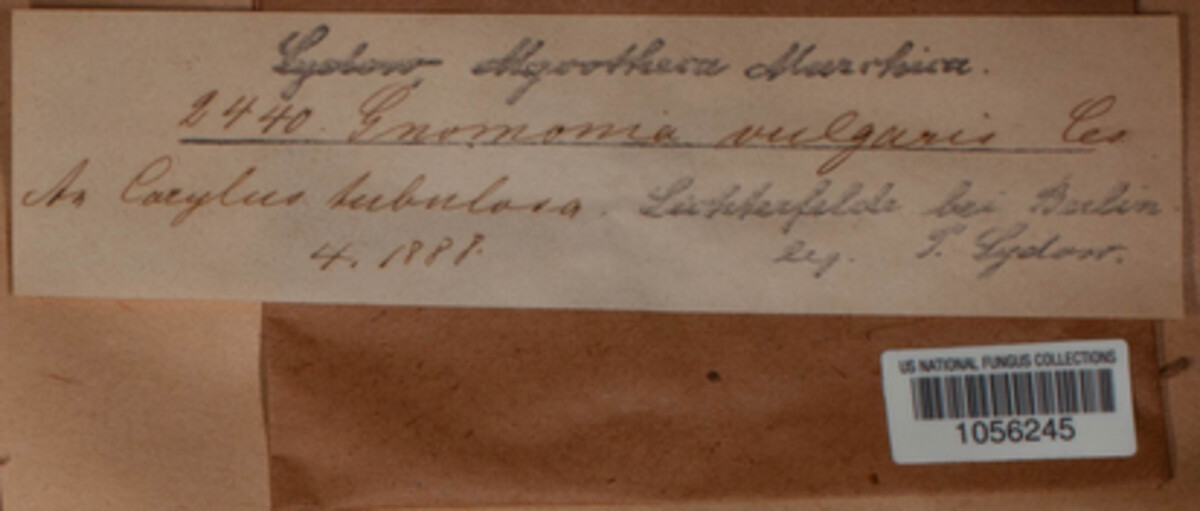 Sydow Mycotheca Marchica.
2440. Gnomonia vulgaris Ces
An Corylus tubulosa. Lichterfelde bei Berlin
4. 1888. leg. P. Sydow.
US NATIONAL FUNGUS COLLECTIONS
1056245